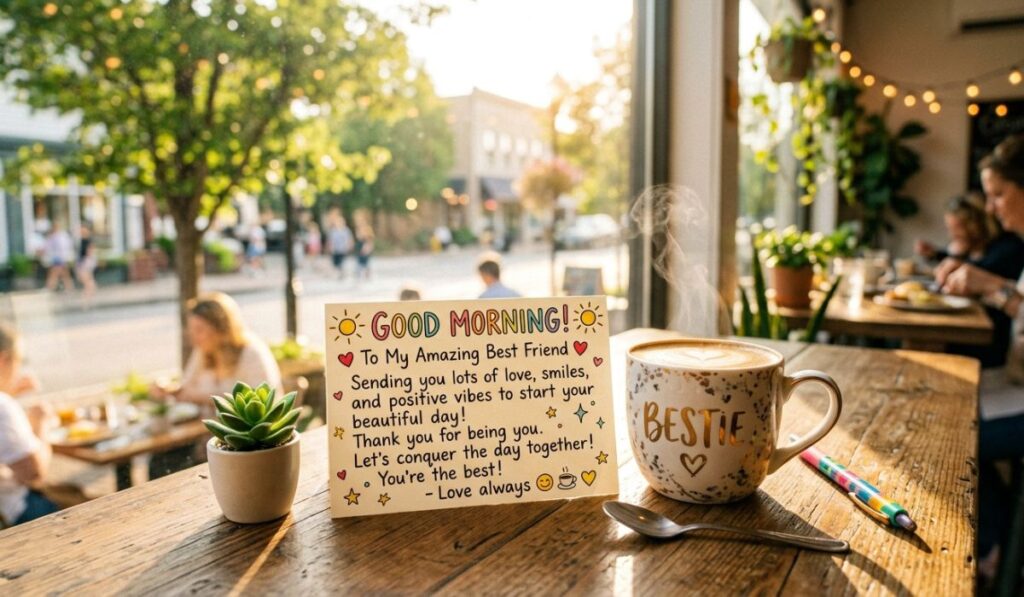 GOOD MORNING!
To My Amazing Best Friend
Sending you lots of love, smiles,
and positive vibes to start your
beautiful day!
Thank you for being you.
Let's conquer the day together!
You're the best!
- Love always
BESTIE